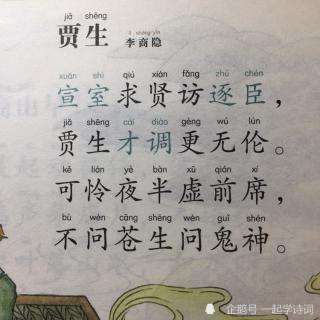 jiǎ shēng
贾生
lǐ shāng yǐn
李商隐
xuān shì qiú xián fǎng zhú chén
宣室求贤访逐臣，
jiǎ shēng cái diào gèng wú lún
贾生才调更无伦。
kě lián yè bàn xū qián xí
可怜夜半虚前席，
bù wèn cāng shēng wèn guǐ shén
不问苍生问鬼神。
企鹅号 一起学诗词